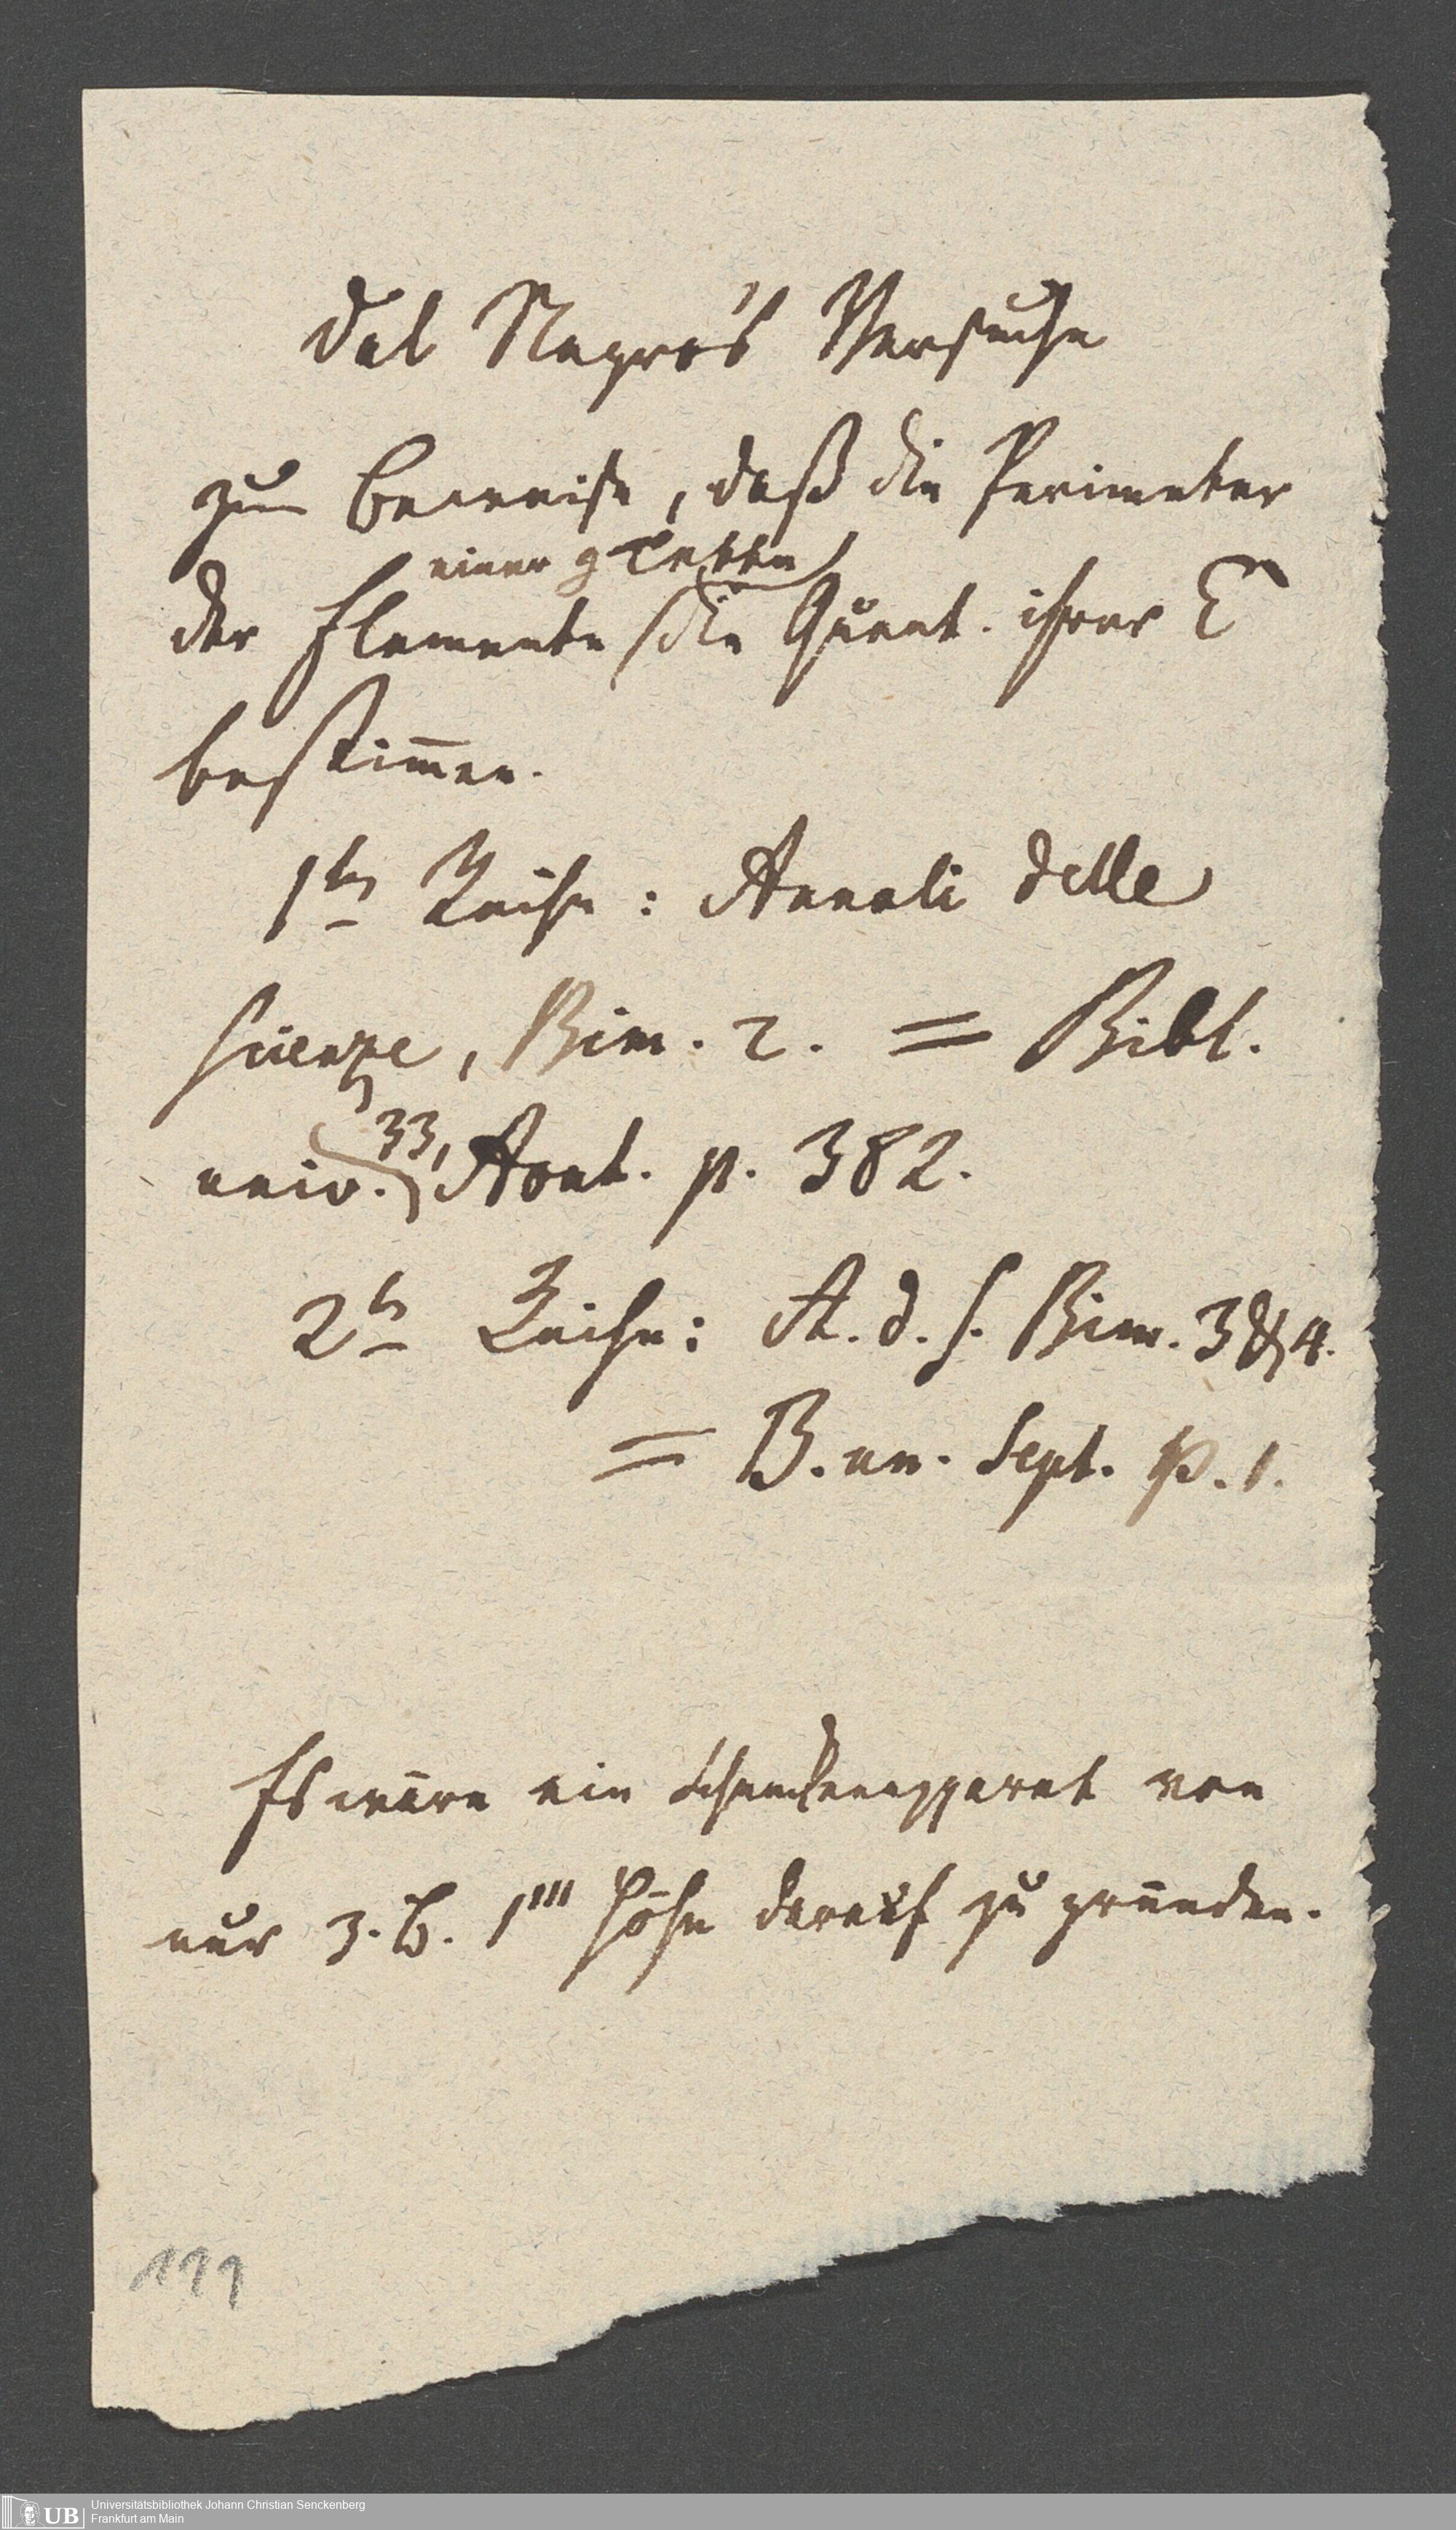 Dal Negro's Versuche
zum Beweise, daß die Perimeter
einer
der Elemente die Quant. ihrer E
bestim̅en.
1te Reihe: Annali delle
Scienze, Bim. 2. = Bibl.
33,
univ. Aout. p. 382.
2te Reihe: A. d. S. Bim. 3 & 4.
= B. un. Sept. p. 1.
Es wäre ein apparat von
nur z. B. 1''' Höhe darauf zu gründen.
111
UB Universitätsbibliothek Johann Christian Senckenberg
Frankfurt am Main